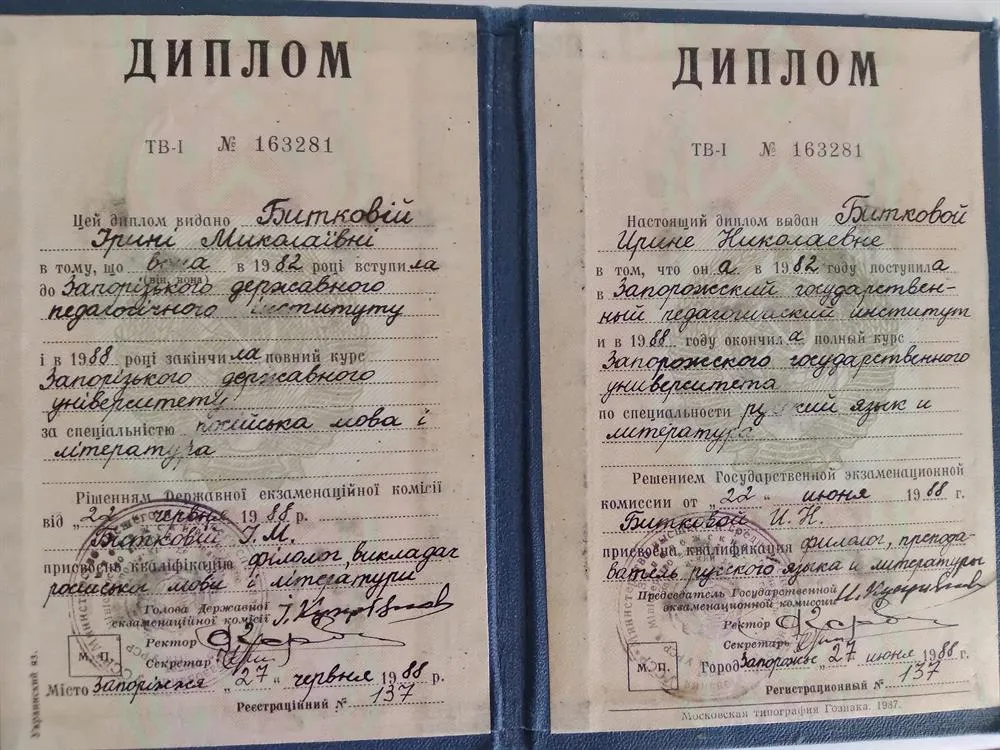 ДИПЛОМ
ТВ-I № 163281
Цей диплом видано Битковій
Ірині Миколаївні
в тому, що вона в 1982 році вступила
(він, вона)
до Запорізького державного
педагогічного інституту
і в 1988 році закінчила повний курс
Запорізького державного
університету
за спеціальністю російська мова і
література
Рішенням Державної екзаменаційної комісії
від „22 червня 1988 р.
Битковій І. М.
присвоєна кваліфікацію філолог, викладач
російської мови і літератури
Голова Державної
екзаменаційної комісії
Ректор
Секретар
М. П.
Місто Запоріжжя „27 “ червня 1988 р.
Реєстраційний № 137
Украинский яз.
ДИПЛОМ
ТВ-I № 163281
Настоящий диплом выдан Битковой
Ирине Николаевне
в том, что она в 1982 году поступила
в Запорожский государствен-
ный педагогический институт
и в 1988 году окончила полный курс
Запорожского государственного
университета
по специальности русский язык и
литература
Решением Государственной экзаменационной
комиссии от „22 “ июня 1988 г.
Битковой И. Н.
присвоена квалификация филолог, препода-
ватель русского языка и литературы
Председатель Государственной
экзаменационной комиссии
Ректор
Секретарь
М. П.
Город Запорожье „27 июня 1988 г.
Регистрационный № 137
Московская типография Гознака. 1987.